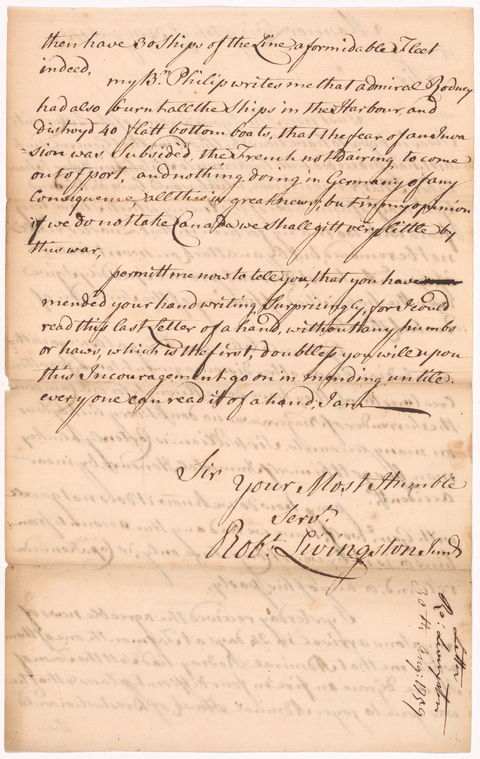 then have 30 Ships of the Line, a formidable Fleet
indeed,
my Br. Philip writes me that admiral Rodney
had also burn'd all the Ships in the Harbour, and
distroyd 40 flatt bottom boats, that the fear of an Inva
=sion was Subsided, the French not dairing to come
out of port, and nothing doing in Germany of any
Consiquence, all this is great news, but in my opinion
if we do not take Canada we shall gitt very little by
this war,
permitt me now to tell you, that you have
mended your hand writing Surprizingly, for I could
read this last Letter of a hand, without any humbs
or haws, which is the first, doubtless you will upon
this Incouragement go on in mending untile
every one can read it of a hand, I am
Sir
Your Most Humble
Servt.
Robt. Livingston Junr.
Letter
Ro: Livingston
30th Aug: 1759